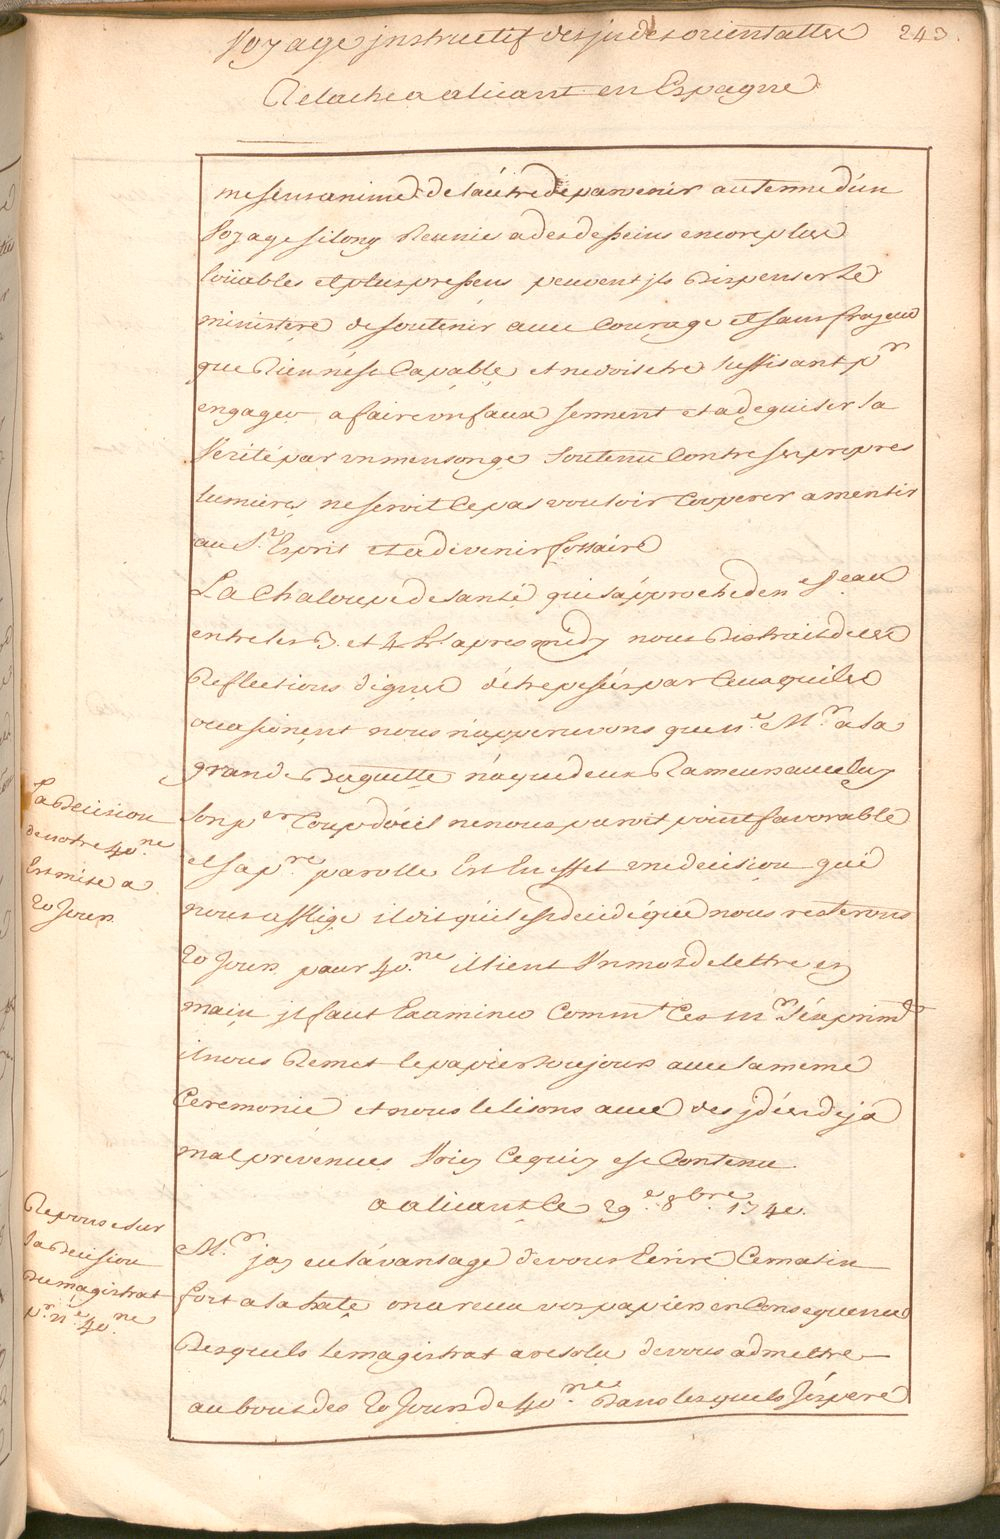 Voyage jnstructif des jndes orientalles 243.
Relache a alicant en Espagne
me sens animé de l'autre de parvenir au terme d'un
Voyage si long Reunie a des desseins encore plus
loüables et plus pressens peuvent jls Dispenser le
ministere de soutenir avec Courage et sans frayeur
que Rien n'est Capable et ne doit etre suffisant pr
engager a faire un faux serment et a deguiser la
Verité par un mensonge soutenu Contre ses propres
lumieres ne seroit Ce pas vouloir Cooperer a mentir
au St Esprit et a devenir fossaire
La Chaloupe de santé qui s'approche de ne Veau
entre les 3. et 4 hrs apres midy nous Distrait de ces
Reflections dignes d'etre pesées par Ceux qui les
ocasionent nous n'appercevons que ne Mr a la
grande Baguette n'a que deux Rameurs avec luy
son per Coup d'oeil ne nous paroit point favorable
et sa pre parolle Est En effet une decision qui
nous afflige il dit qu'il est decidé que nous resterons
20 Jours pour 40.ne il tient Un mot de lettre en
main jl faut Examiner Commt Ces Mrs s'exprimt
il nous Remet le papier toujours avec la meme
Ceremonie et nous le lisons avec des jdées deja
mal prevenues Voicy Ce qui y est Contenu.
a alicant le 29.e 8bre 174e.
Mr. j'ay eu l'avantage de vous Ecrire Ce matin
fort a la hate on a reçu vos papiers en Consequence
Desquels le magistrat a resolu de vous admettre
au bout des 20 Jours de 40.ne Dans lesquels J'esperé
La Decision
de notre 40.ne
Est mise a
20 Jours
Reponse sur
la Decision
Du magistrat
pr ne 40.ne